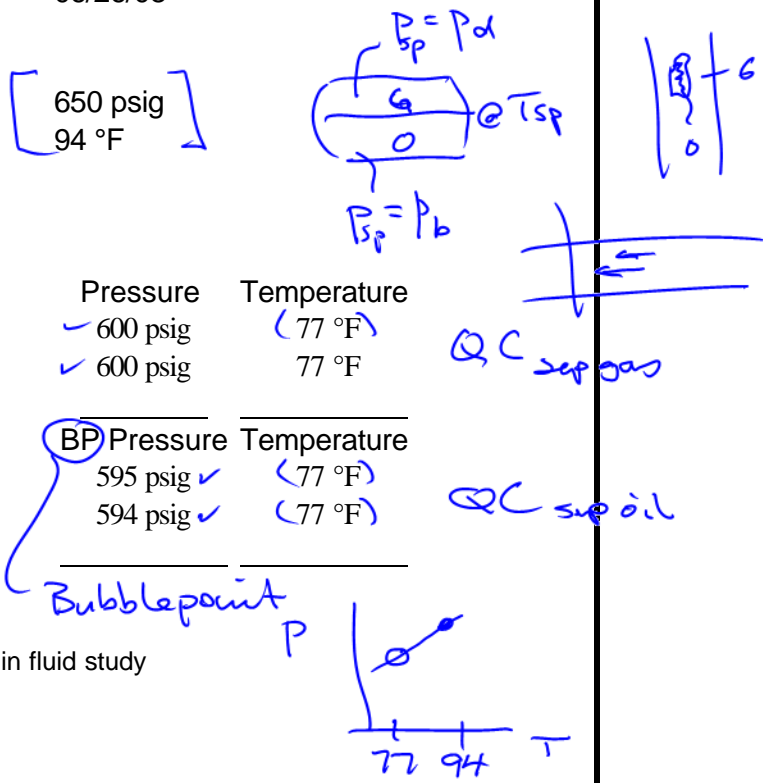 P_sp = Pd
650 psig
94 °F
G
@ Tsp
O
G
O
P_sp = P_b
Pressure Temperature
600 psig (77 °F)
600 psig 77 °F
QC sep gas
BP Pressure Temperature
595 psig (77 °F)
594 psig (77 °F)
QC sep oil
Bubblepoint
P
in fluid study
77 94 T